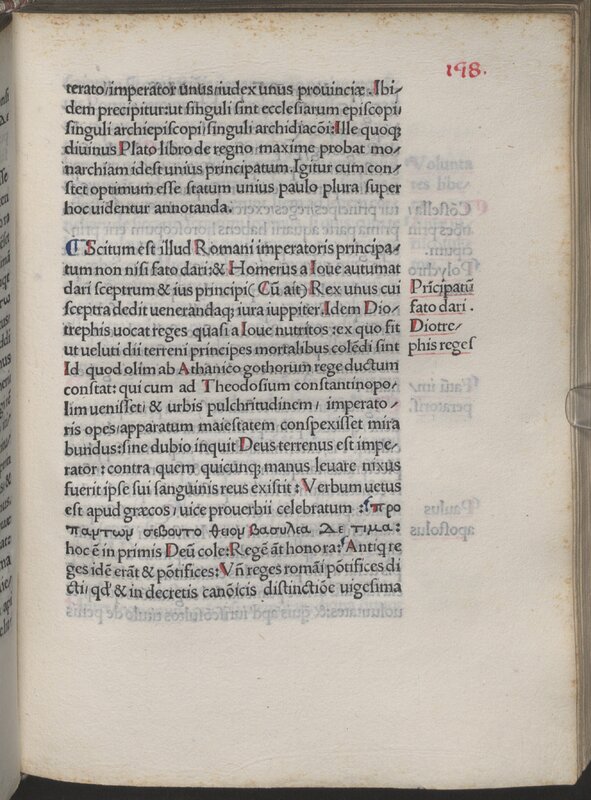 198.
terato/imperator unus/iudex unus prouinciæ.Ibi/
dem precipitur:ut singuli sint ecclesiarum episcopi/
singuli archiepiscopi/singuli archidiacōi:Ille quoq;
diuinus Plato libro de regno maxime probat mo/
narchiam idest unius principatum.Igitur cum con/
stet optimum esse statum unius paulo plura super
hoc uidentur annotanda.
Scitum est illud Romani imperatoris principa/
tum non nisi fato dari:& Homerus a Ioue autumat
dari sceptrum & ius principi(Cū ait)Rex unus cui
sceptra dedit uenerandaq; iura iuppiter.Idem Dio/
trephis uocat reges quasi a Ioue nutritos:ex quo fit
ut ueluti dii terreni principes mortalibus colēdi sint
Id quod olim ab Athanico gothorum rege ductum
constat:qui cum ad Theodosium constantinopo/
lim uenisset/& urbis pulchritudinem/imperato/
ris opes/apparatum maiestatem conspexisset mira
bundus:sine dubio inquit Deus terrenus est impe/
rator:contra quem quicunq; manus leuare nixus
fuerit ipse sui sanguinis reus existit:Verbum uetus
est apud græcos/uice prouerbii celebratum:προ
παντων σεβουτο θειον βασυλεα δε τιμα:
hoc ē in primis Deū cole:Regē āt honora:Antiq re
ges idē erāt & pōtifices:Vñ reges romāi pōtifices di
cti/qđ & in decretis canōicis distinctiōe uigesima
Prīcipatū
fato dari.
Diotre/
phis reges